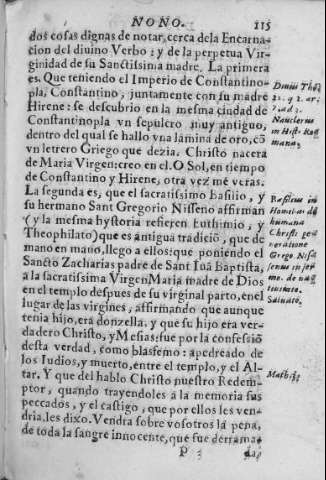 NONO.
115
dos cosas dignas de notar, cerca dela Encarna-
cion del diuino Verbo: y de la perpetua Vir-
ginidad de su Sanctissima madre. La primera
es. Que teniendo el Imperio de Constantino-
pla, Constantino, juntamente con su madre
Hirene: se descubrio en la mesma ciudad de
Constantinopla vn sepulcro muy antiguo,
dentro del qual se hallo vna lamina de oro, cõ
vn letrero Griego que dezia. Christo nacera
de Maria Virgen: creo en el. O Sol, en tiempo
de Constantino y Hirene, otra vez me veras.
La segunda es, que el sacratissimo Basilio, y
su hermano Sant Gregorio Nisseno affirman
(y la mesma hystoria refieren Euthimio, y
Theophilato) que es antigua tradiciõ, que de
mano en mano, llego a ellos: que poniendo el
Sancto Zacharias padre de Sant Iuã Baptista,
a la sacratissima Virgen Maria madre de Dios
en el templo despues de su virginal parto, en el
lugar de las virgines, affirmando que aunque
tenia hijo, era donzella, y que su hijo era ver-
dadero Christo, y Mesias: fue por la confessiõ
desta verdad, como blasfemo: apedreado de
los Iudios, y muerto, entre el templo, y el Al-
tar. Y que del hablo Christo nuestro Redem-
ptor, quando trayendoles a la memoria sus
peccados, y el castigo, que por ellos les ven-
dria, les dixo. Vendra sobre vosotros la pena,
de toda la sangre innocente, que fue derrama-
P 3
Diuus Tho.
Nauclerus
in Hist. Ro
mana.
Basilius in
humana
Christi ge
neratione
Grego. Nis
senus in
Mathi.